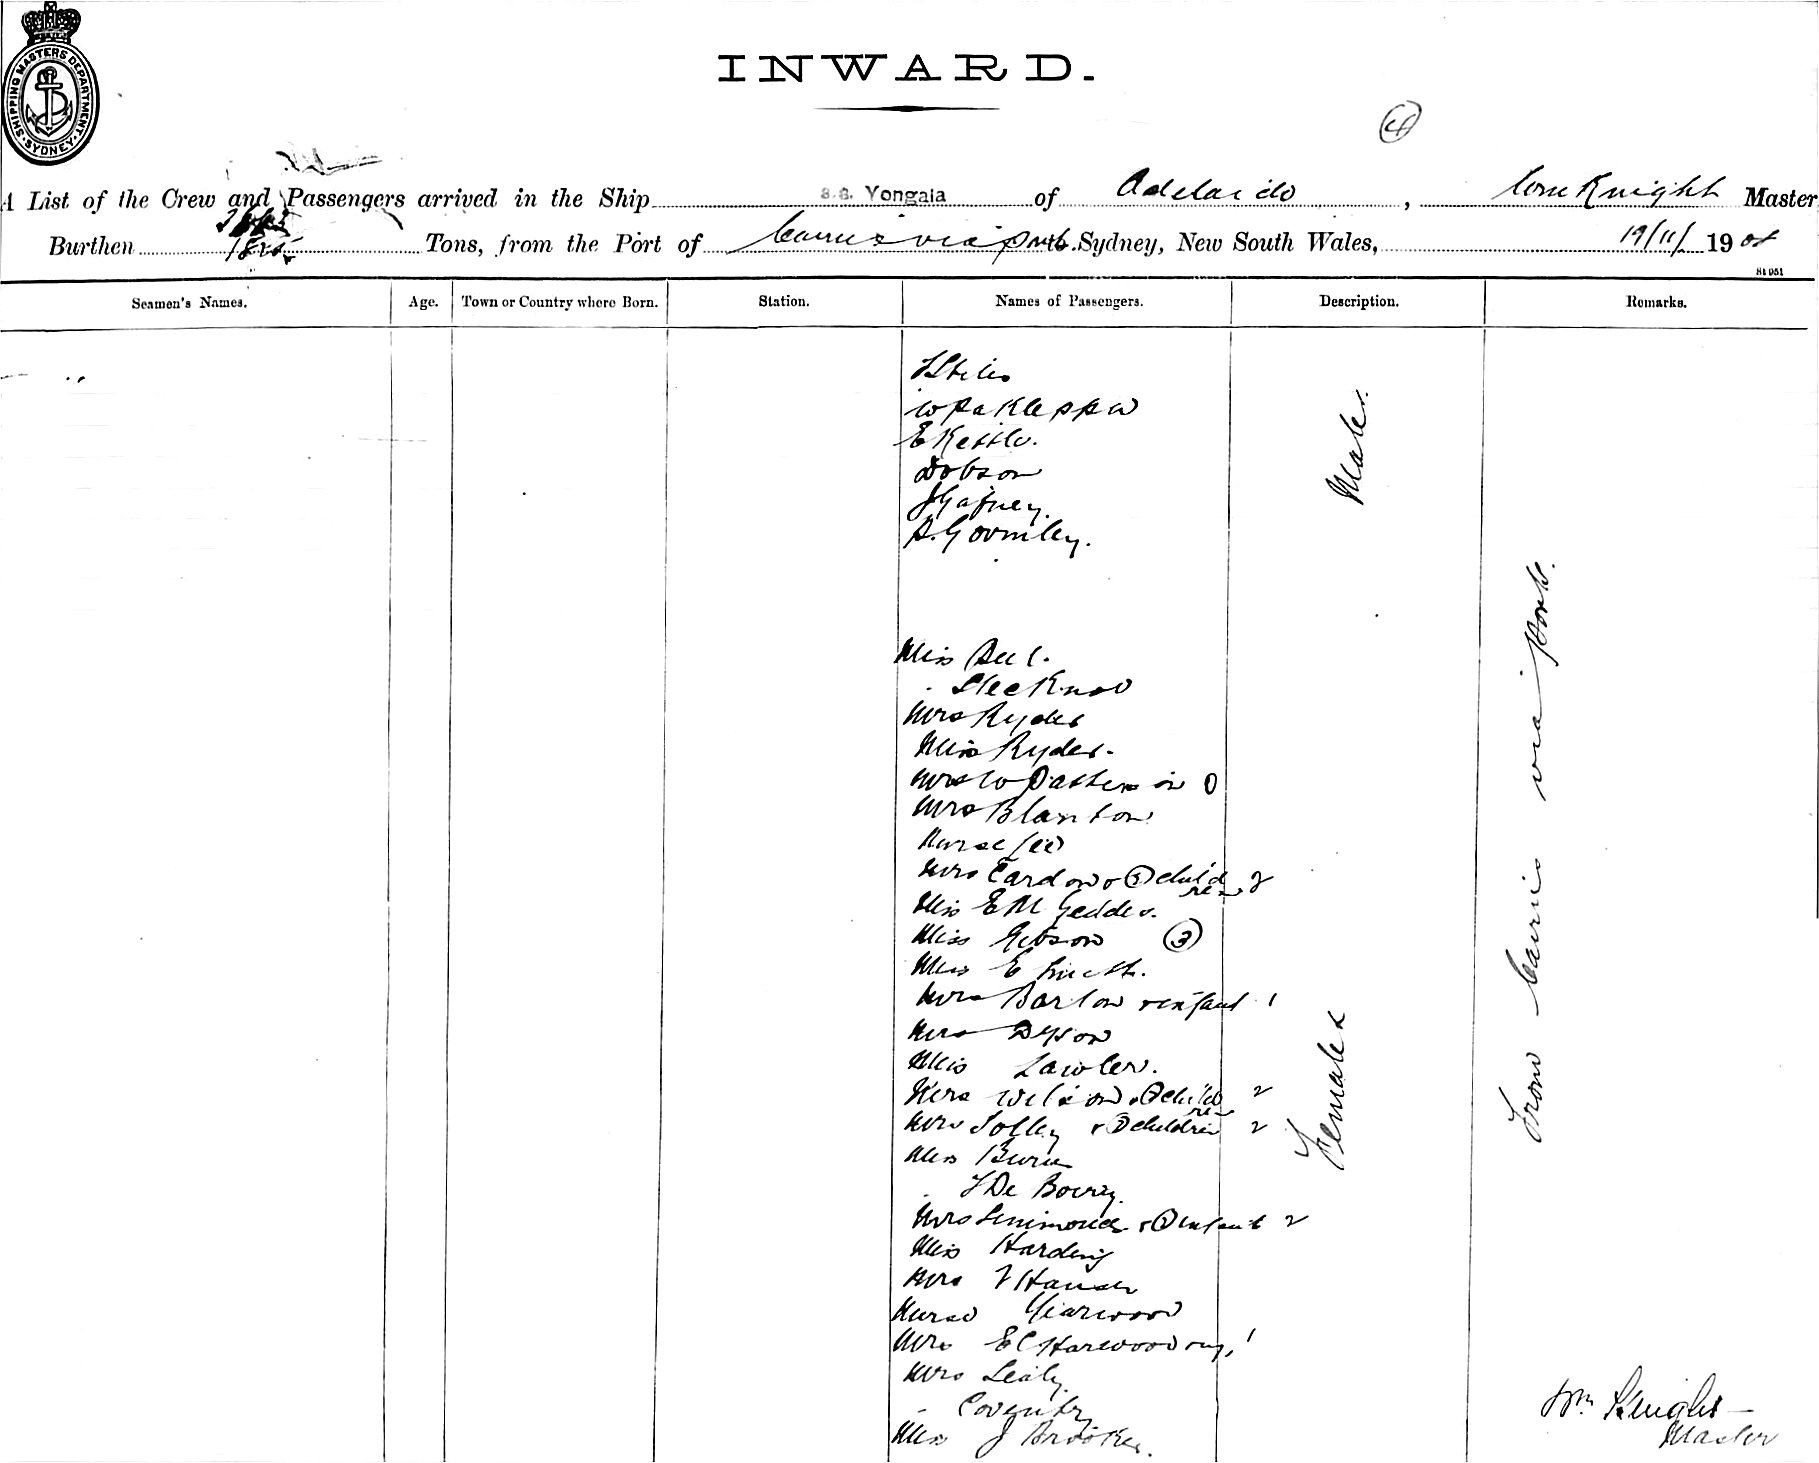 SHIPPING MASTERS DEPARTMENT
SYDNEY
INWARD.
4
A List of the Crew and Passengers arrived in the Ship S.S. Yongala of Adelaide, Wm Knight Master
Burthen 1825 Tons, from the Port of Cairns via ports Sydney, New South Wales, 19/11/ 1908
81 051
Seamen's Names. Age. Town or Country where Born. Station. Names of Passengers. Description. Remarks.
Males.
Dobson
J Gafney.
Gormley.
From Cairns via Ports.
Females
Miss
Mrs Ryder
Miss Ryder.
Mrs W Patterson
Mrs Blanton
Nurse Lee
Mrs Cardow children 2
Miss E M Geddes.
Miss Gibson 3
Miss E Smith.
Mrs Barlow & infant 1
Mrs Dyson
Miss Lawler.
Mrs Wilson & 2 children 2
Mrs Tolley & 2 children 2
Miss
F De Bovery.
Mrs Simmonds & 2 infants 2
Miss Harding
Mrs Hansen
Nurse Yearwood
Mrs E C Harwood 1
Mrs
Coventry
Miss J Brooker.
Wm Knight
Master